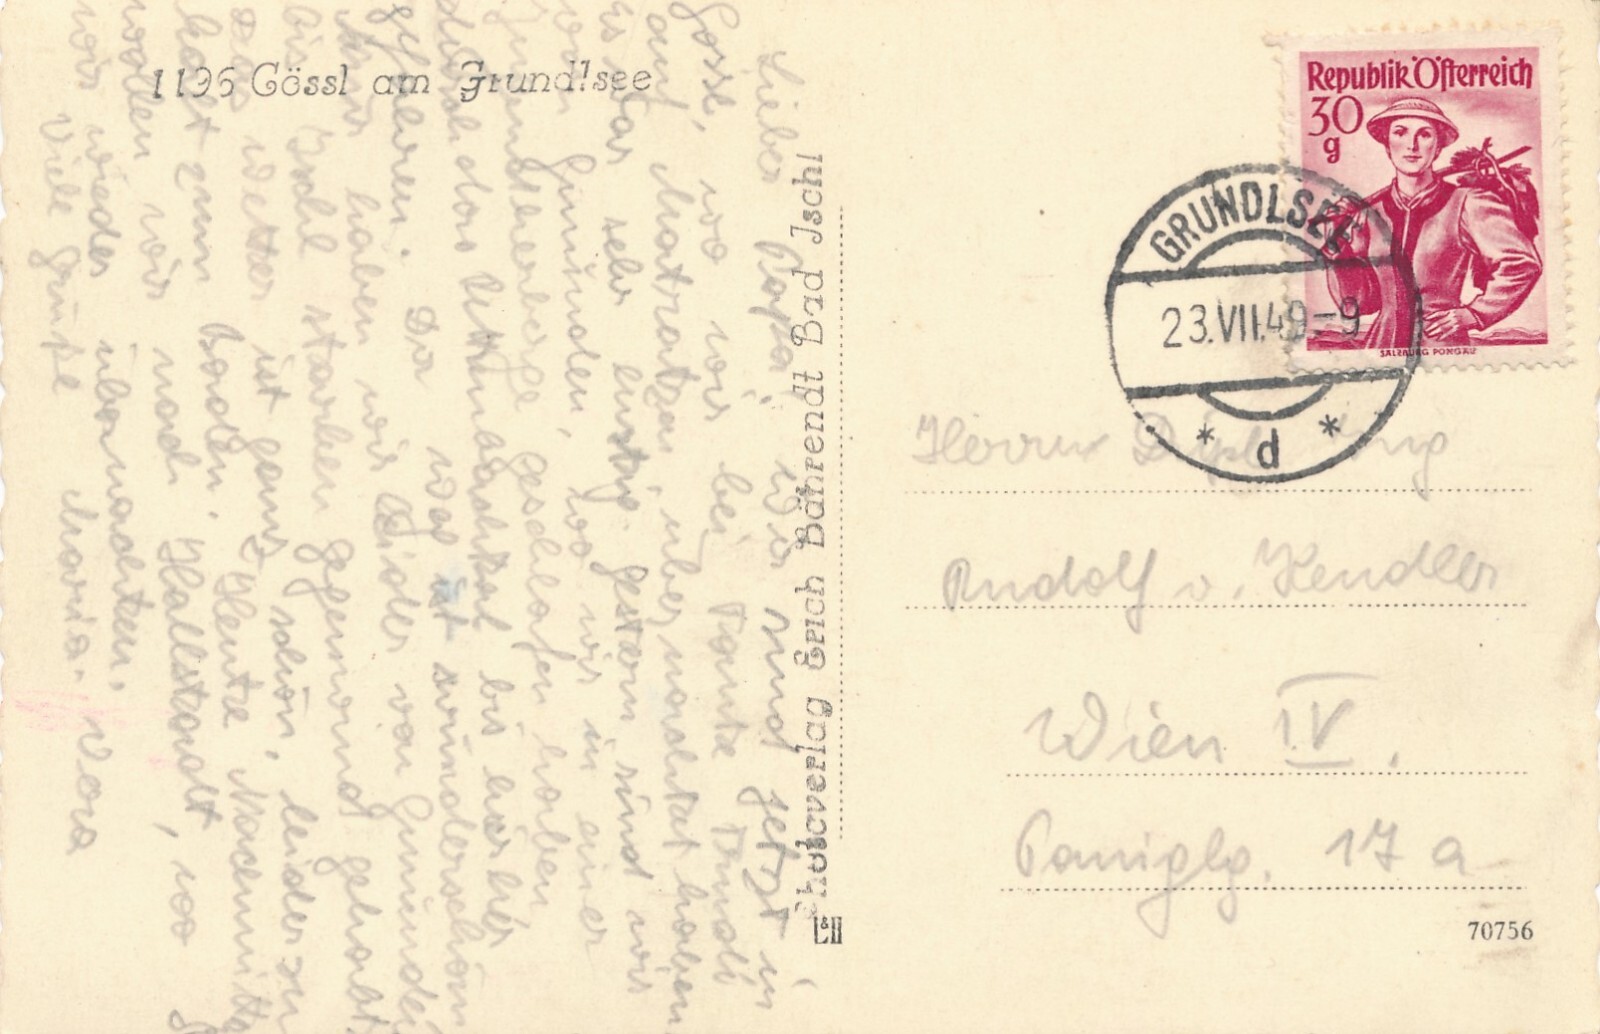 1196 Gössl am Grundlsee
Lieber Papa! Wir sind jetzt in
Gössl, wo wir bei Tante Trudi
auf Matratzen übernachtet haben
Es war sehr lustig. Gestern sind wir
von Gmunden, wo wir in einer
Jugendherberge geschlafen haben
durch das Weißenbachtal bis hierher
gefahren. Da war es wunderschön
Nur haben wir leider von Gmunden
bis Ischl starken Gegenwind gehabt.
Das Wetter ist ganz schön, leider zu
kalt zum Baden. Heute Nachmittag
wollen wir nach Hallstadt, wo
wir wieder übernachten.
Viele Grüße Maria. Vera
Photoverlag Erich Bährendt Bad Ischl
L&H
Republik Österreich
30
g
SALZBURG PONGAU
GRUNDLSEE
23.VII.49-9
* d *
Herrn Dipl. Ing
Rudolf v. Kendler
Wien IV.
Paniglg. 17 a
70756